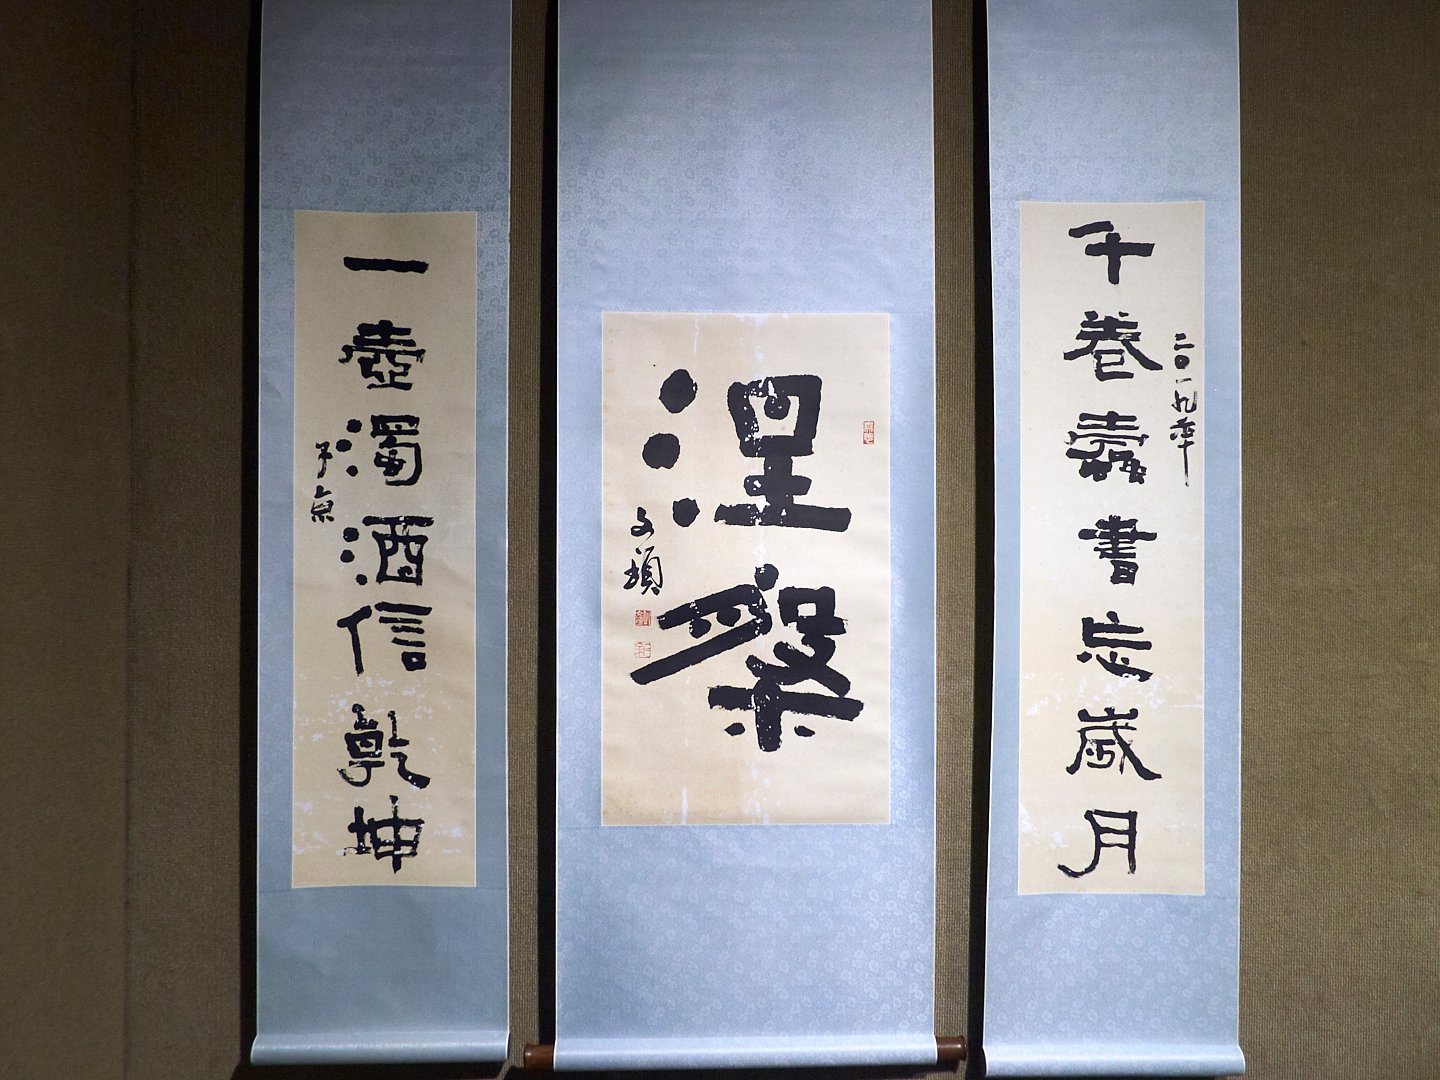 千卷蠹書忘歲月
二〇一九年
涅槃
一壺濁酒信乾坤
于京